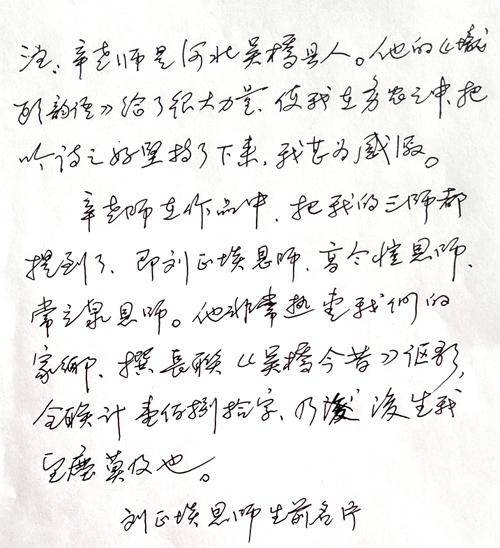 注、辛老师是河北吴橋县人。他的《壠
韵语》给了很大力量、使我在务农之中、把
吟诗之好坚持了下来、我甚为感激。
辛老师在作品中、把我的三师都
提到了、即刘正埃恩师、高令恒恩师、
常之泉恩师。他非常热爱我们的
家鄉、撰長聨《吴橋今昔》讴歌,
全联计壹佰捌拾字、乃後生我
望塵莫及也。
刘正埃恩师生前名片